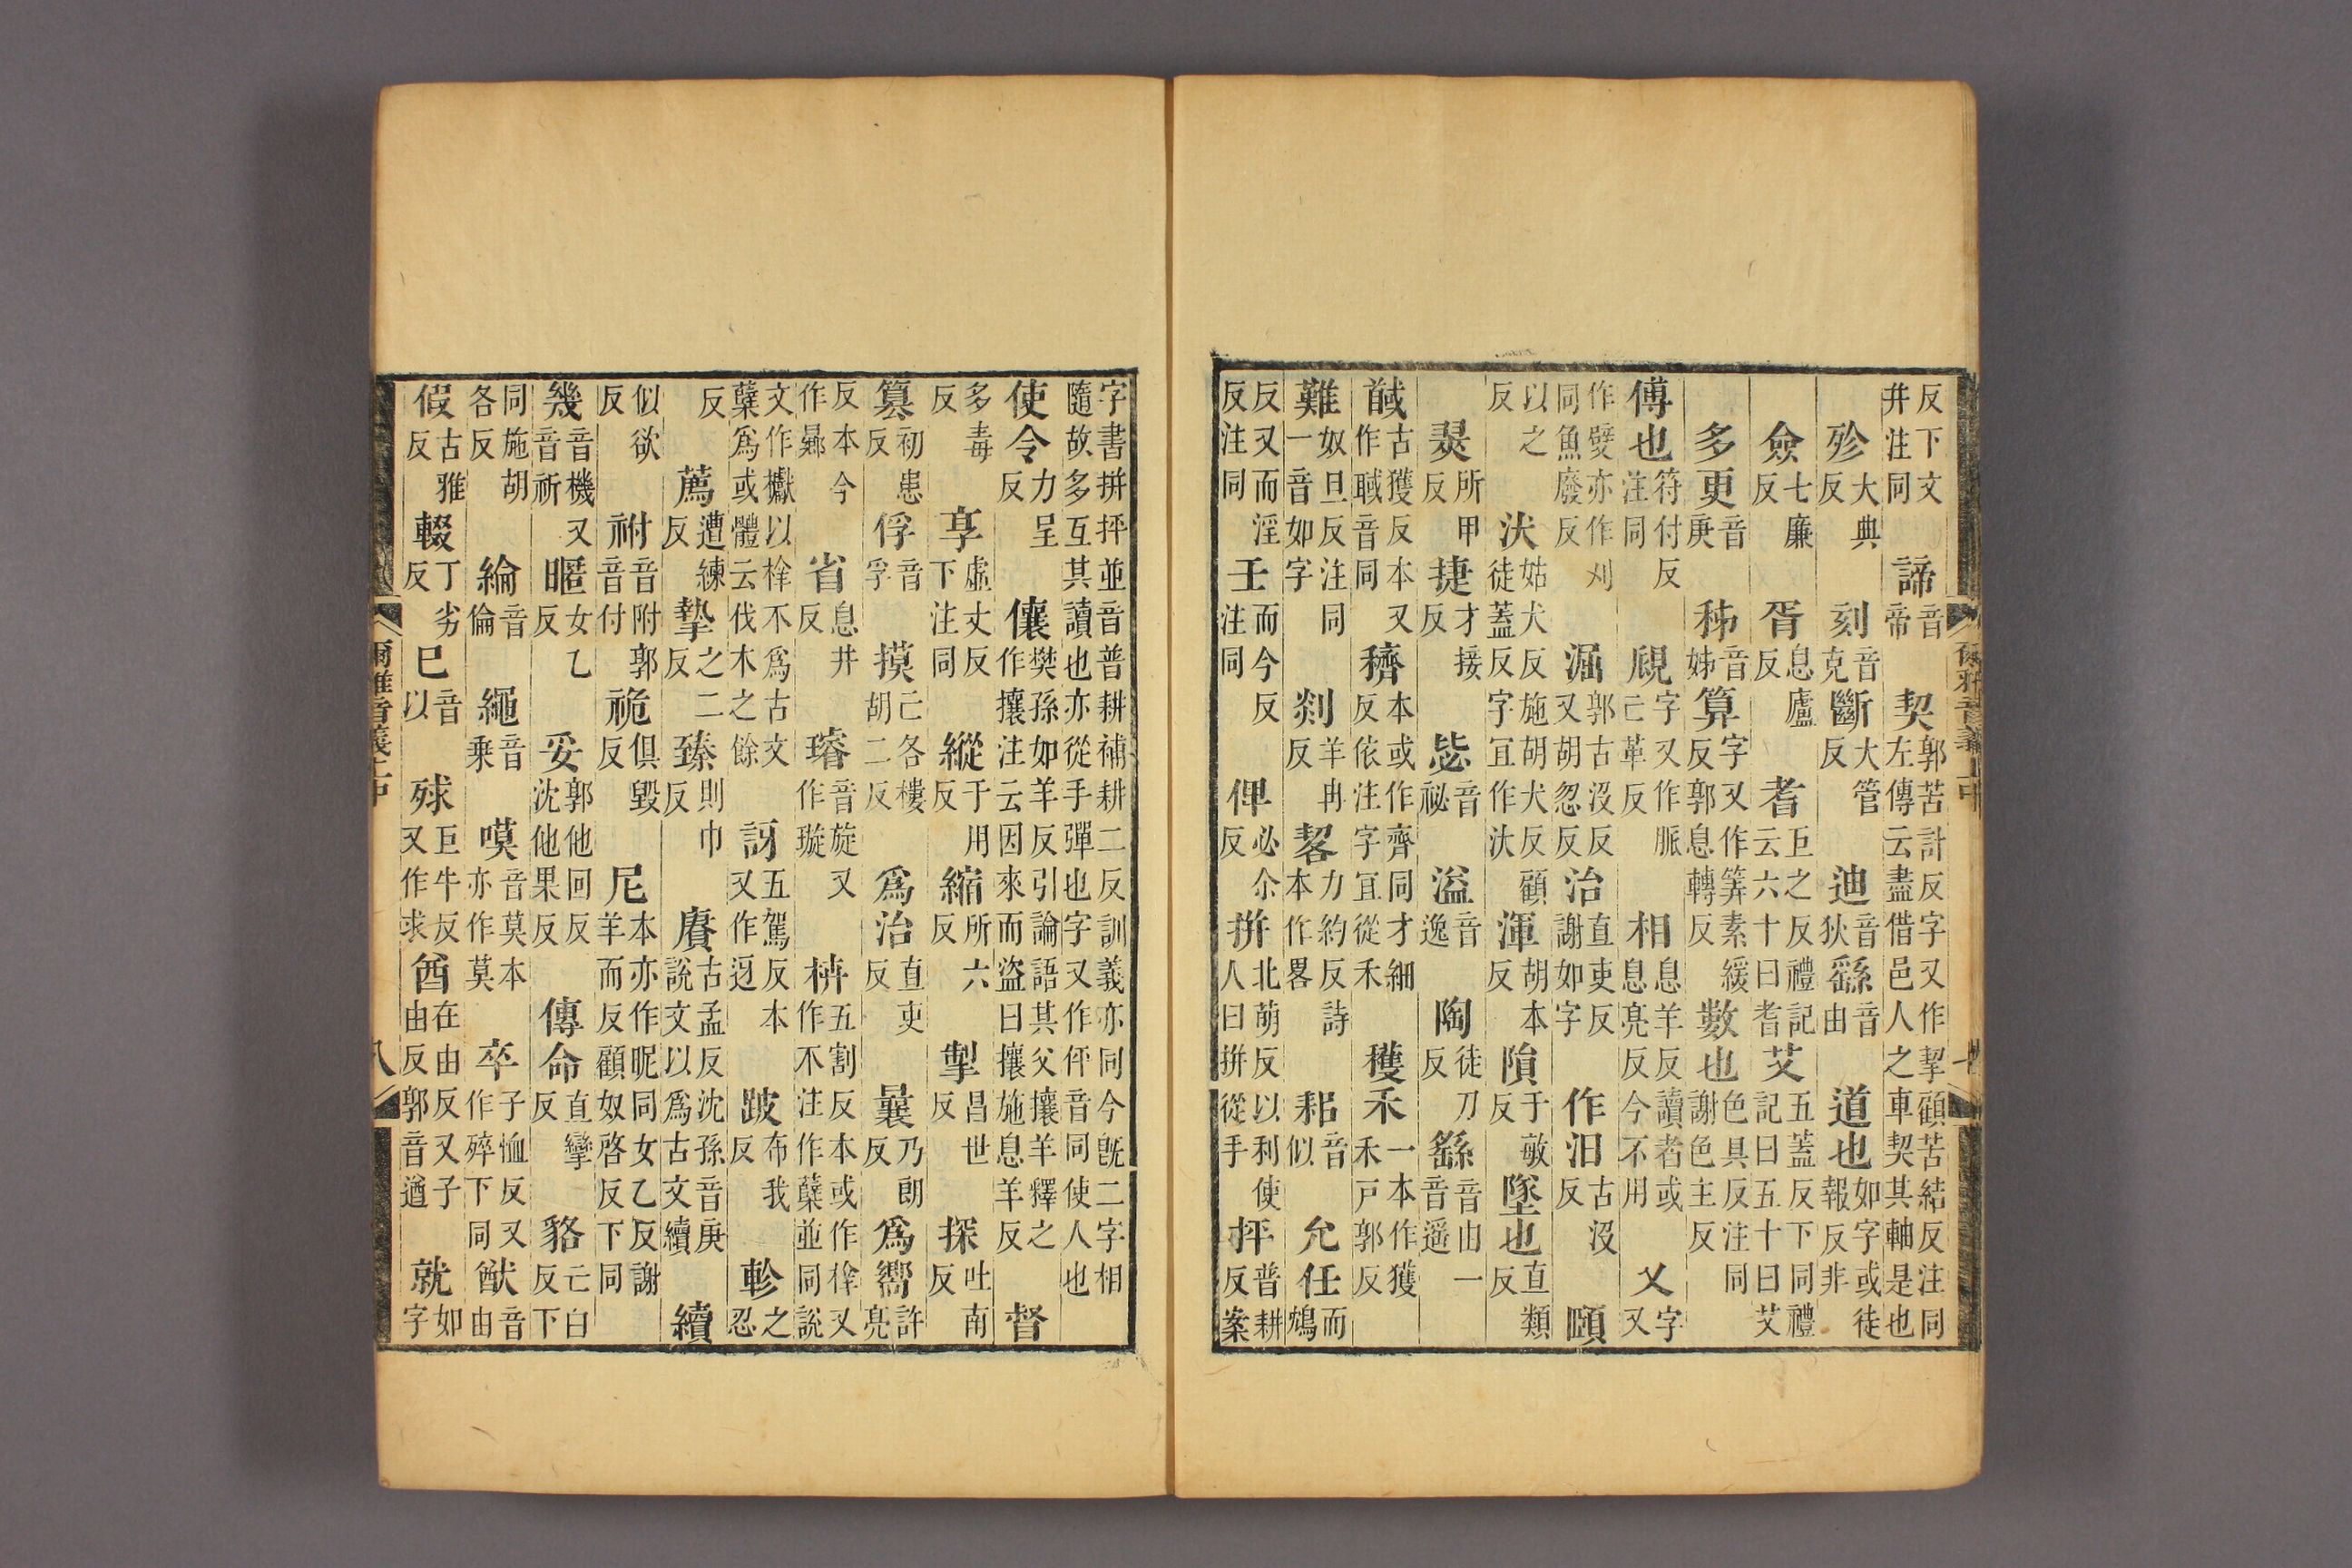 反下文井注同　諦音帝　契郭苦計反字又作挈顧苦結反注同左傳云盡借邑人之車契其軸是也
殄大典反　刻音克　斷大管反　迪音狄　繇音由　道也如字或徒報反非
僉七廉反　胥息廬反　耆巨之反禮記云六十曰耆　艾五蓋反下同禮記曰五十曰艾
多更音庚　秭音姊　算字又作筭素緩反郭息轉反　數也色具反注同謝色主反
傅也符付反注同　覛字又作脈亡革反　相息羊反讀者或息亮反今不用　乂字又
作㡀亦作刈同魚廢反　淈郭古沒反又胡忽反　治直吏反謝如字　作汩古沒反　頤
以之反　汱姑犬反施胡犬反顧徒蓋反字宜作汱　渾胡本反　隕于敏反　墜也直類反
翜所甲反　捷才接反　毖音祕　溢音逸　陶徒刀反　繇音由一音遥
馘古獲反本又作聝音同　穧本或作齊同才細反依注字宜從禾　穫禾一本作獲禾戸郭反
難奴旦反注同一音如字　剡羊冉反　䂮力約反詩本作畧　耜音似　允任而鴆
反又而淫反注同　壬而今反注同　俾必尒反　拼北萌反以利使人曰拼從手　抨普耕反案
字書拼抨並音普耕補耕二反訓義亦同今旣二字相隨故多互其讀也亦從手彈也字又作伻音同使人也
使令力呈反　儴樊孫如羊反引論語其父攘羊釋之作攘注云因來而盜曰攘施息羊反　督
多毒反　享虛丈反下注同　縱于用反　縮所六反　掣昌世反　探吐南反
篡初患反　俘音孚　摸亡各樓胡二反　爲治直吏反　曩乃朗反　爲嚮許亮
反本今作曏　省息井反　璿音旋又作璇　枿五割反本或作㭒又作不注作蘖並同說
文作㰕以㭒不爲古文櫱爲或體云伐木之餘　訝五駕反本又作迓　跛布我反　軫之忍
反　薦遭練反　摯之二反　臻則巾反　賡古孟反沈孫音庚說文以爲古文續　續
似欲反　祔音附郭音付　祪俱毀反　尼本亦作昵同女乙反謝羊而反顧奴啓反下同
幾音機又音祈　暱女乙反　妥郭他回反沈他果反　傳命直攣反　貉亡白反下
同施胡各反　綸音倫　繩音乗　嗼音莫本亦作莫　卒子恤反又作碎下同　猷音由
假古雅反　輟丁劣反　巳音以　殏巨牛反又作求　酋在由反又子由反郭音遒　就如字
爾雅音義上中
八